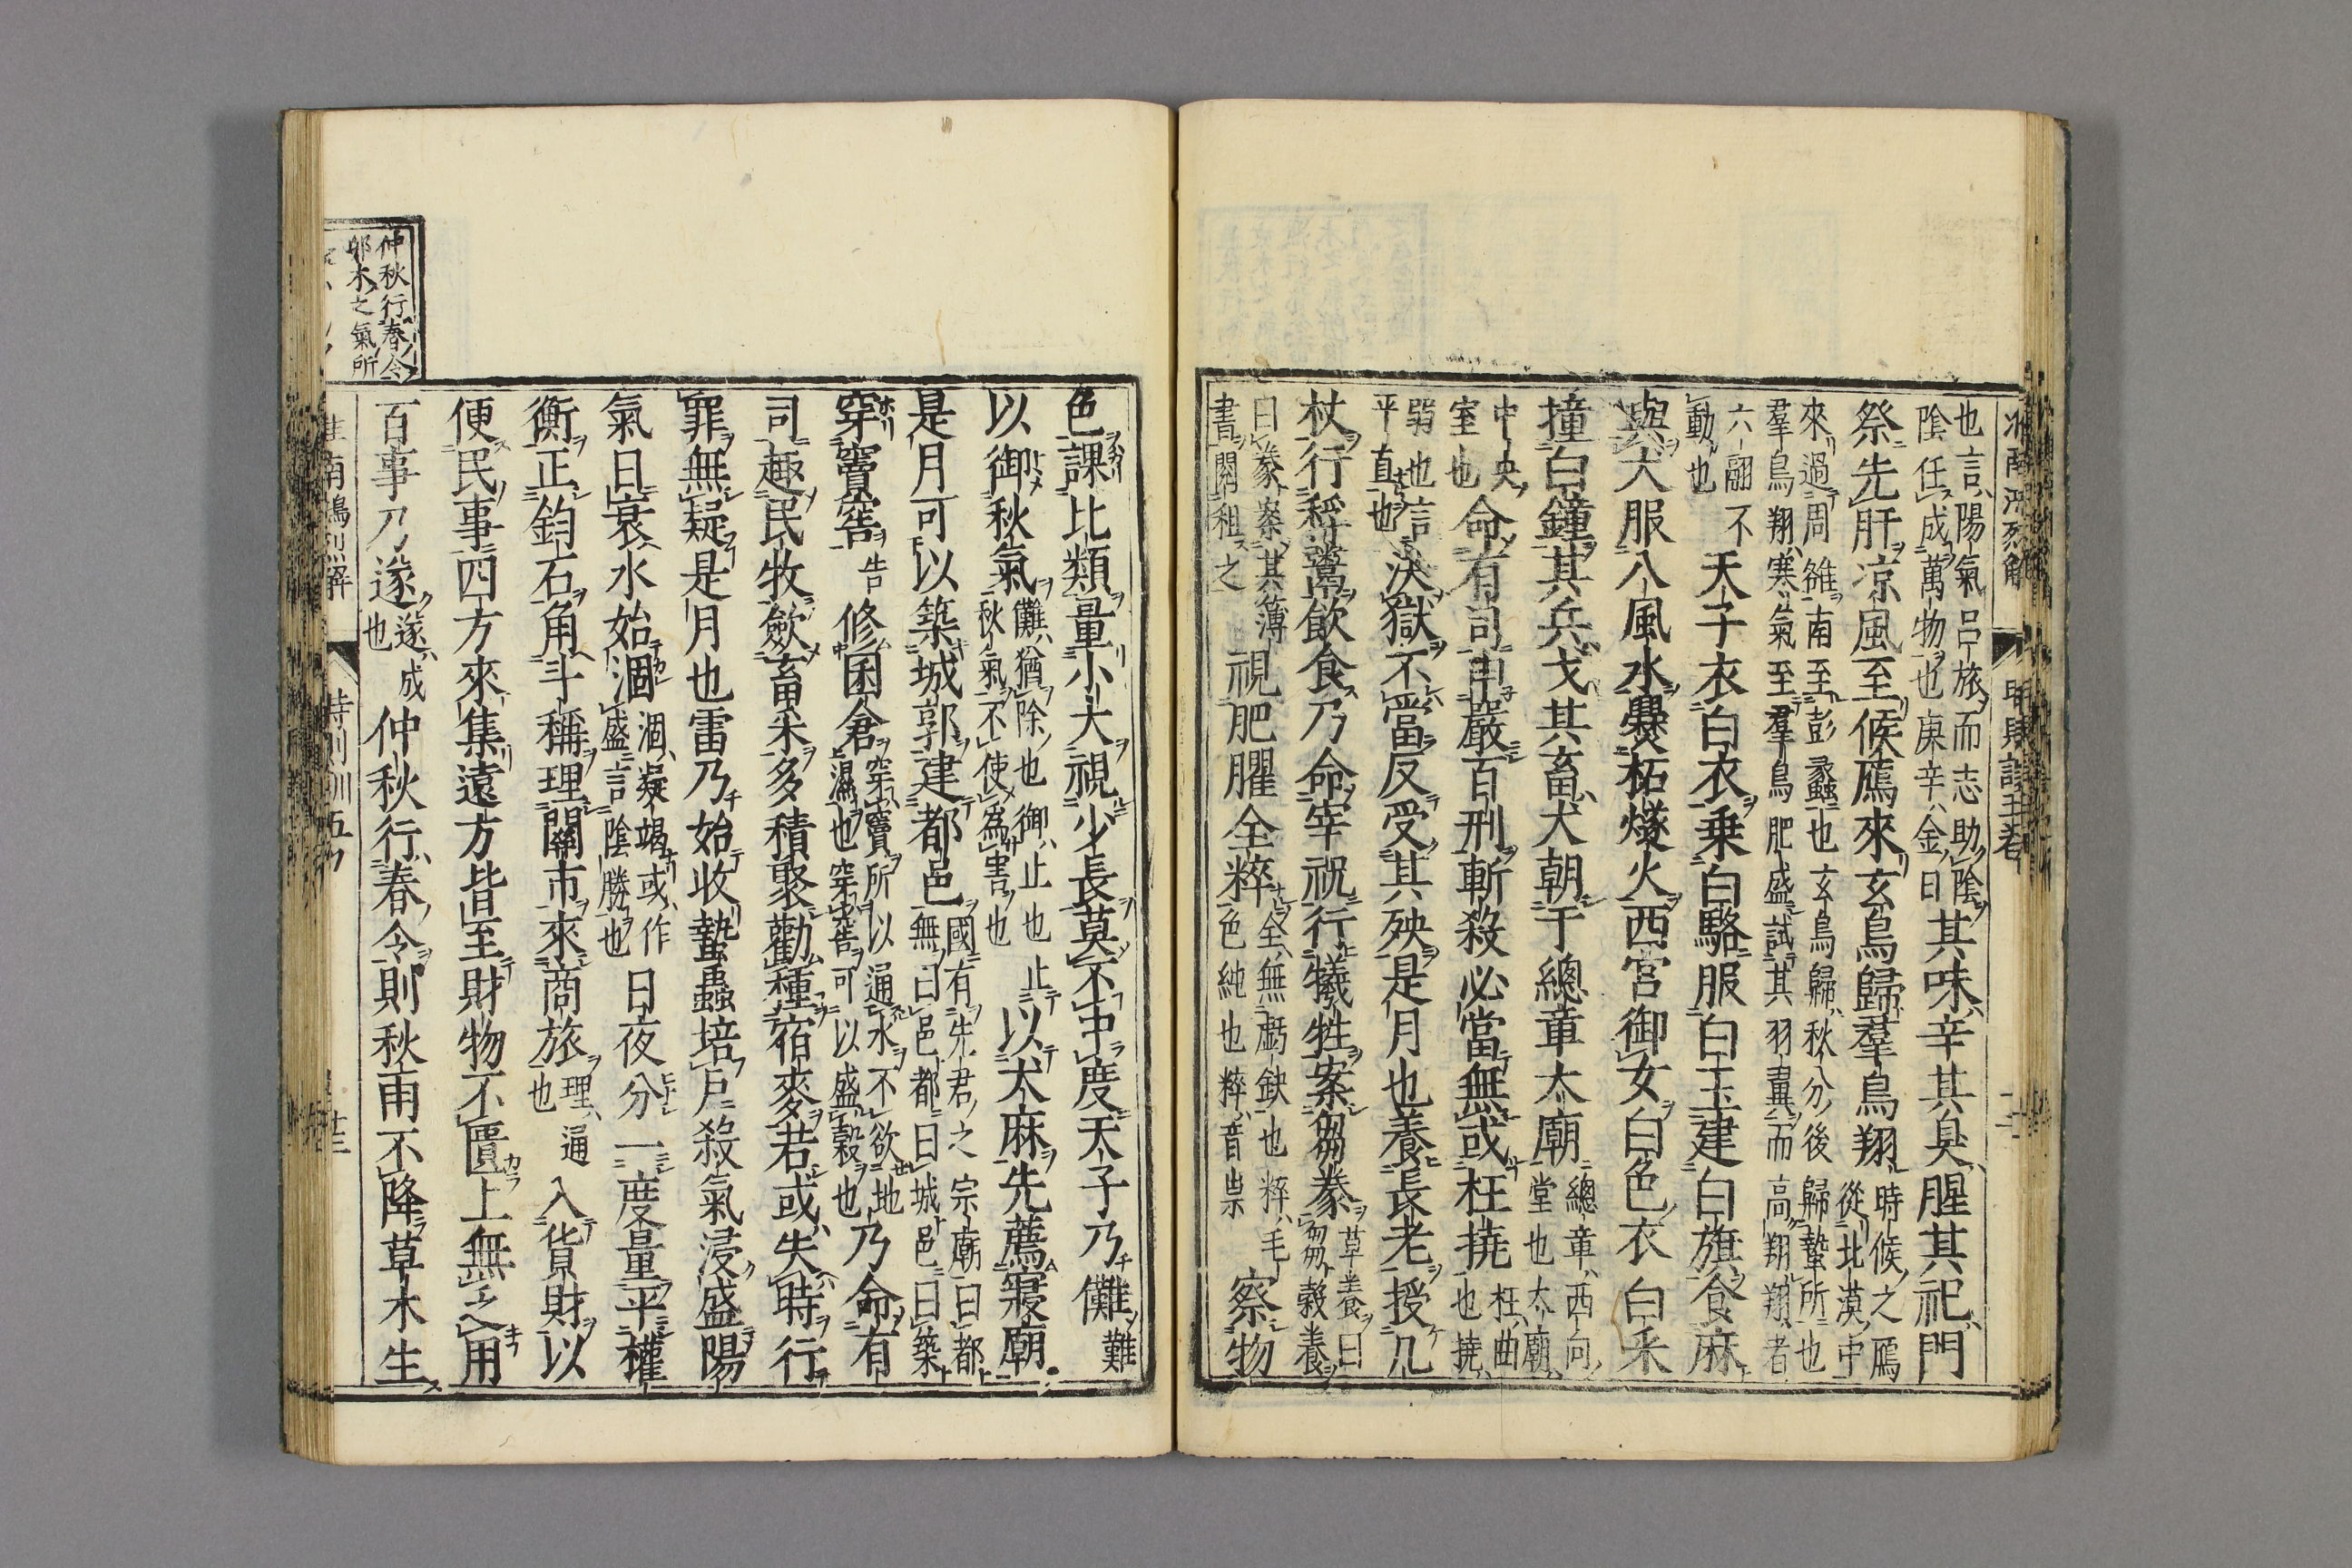 也言陽氣呂旅而志助陰
陰任成萬物也庚辛金曰
其味辛其臭腥其祀門
祭先肝凉風至候鴈來玄鳥歸羣鳥翔
時候之鴈
從北漠中
來過周雒南至彭蠡也玄鳥歸秋分後歸蟄所也
羣鳥翔寒氣至羣鳥肥盛試其羽翼而高翔翔者
六翮不
動也
天子衣白衣乗白駱服白玉建白旗食麻
與犬服八風水爨柘燧火西宮御女白色衣白采
撞白鐘其兵戈其畜犬朝于總章太廟
總章西向
堂也太廟
中央
室也
命有司申嚴百刑斬殺必當無或枉撓
枉曲
也撓
弱也言
平直也
決獄不當反受其殃是月也養長老授几
杖行稃鬻飲食乃命宰祝行犧牲案芻豢
草養曰
芻穀養
曰豢案其簿
書閱租之
視肥臞全粹
全無虧缺也粹毛
色純也粹音祟
察物
色課比類量小大視少長莫不中度天子乃儺難
以御秋氣
儺猶除也御止也止
秋氣不使爲害也
以犬麻先薦寢廟
是月可以築城郭建都邑
國有先君之宗廟曰都
無曰邑都曰城邑曰築
穿竇窖告修囷倉
穿竇所以通水不欲地
濕也穿窖可以盛穀也
乃命有
司趣民收斂畜采多積聚勸種宿麥若或失時行
罪無疑是月也雷乃始收蟄蟲培戶殺氣浸盛陽
氣日衰水始涸
涸凝竭或作
盛言陰勝也
日夜分一度量平權
衡正鈞石角斗稱理關市來商旅
理通
也
入貨財以
便民事四方來集遠方皆至財物不匱上無乏用
百事乃遂
遂成
也
仲秋行春令則秋雨不降草木生
仲秋行春令
卯木之氣所
南鴻烈解 時則訓五